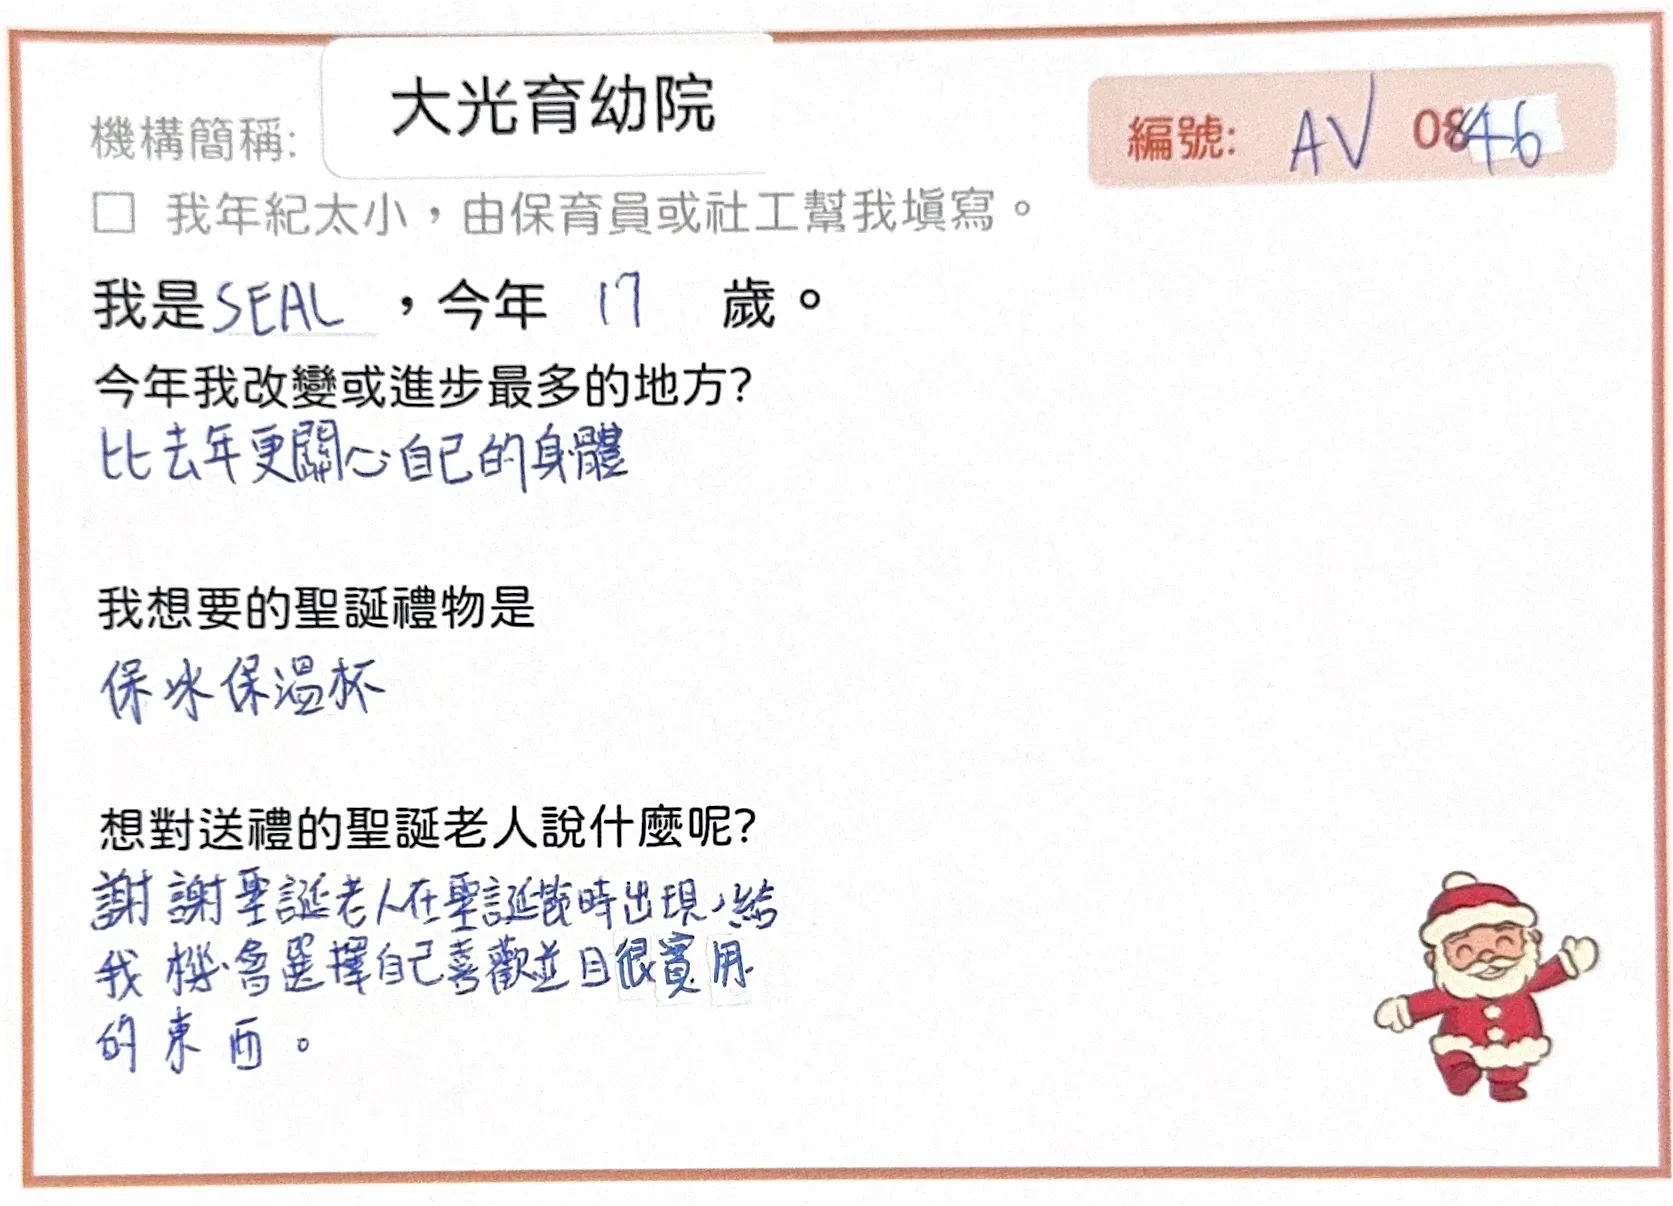 機構簡稱: 大光育幼院
編號: AV 0846
□ 我年紀太小，由保育員或社工幫我填寫。
我是SEAL，今年 17 歲。
今年我改變或進步最多的地方?
比去年更關心自己的身體
我想要的聖誕禮物是
保冰保溫杯
想對送禮的聖誕老人說什麼呢?
謝謝聖誕老人在聖誕節時出現，給
我機會選擇自己喜歡並且很實用
的東西。